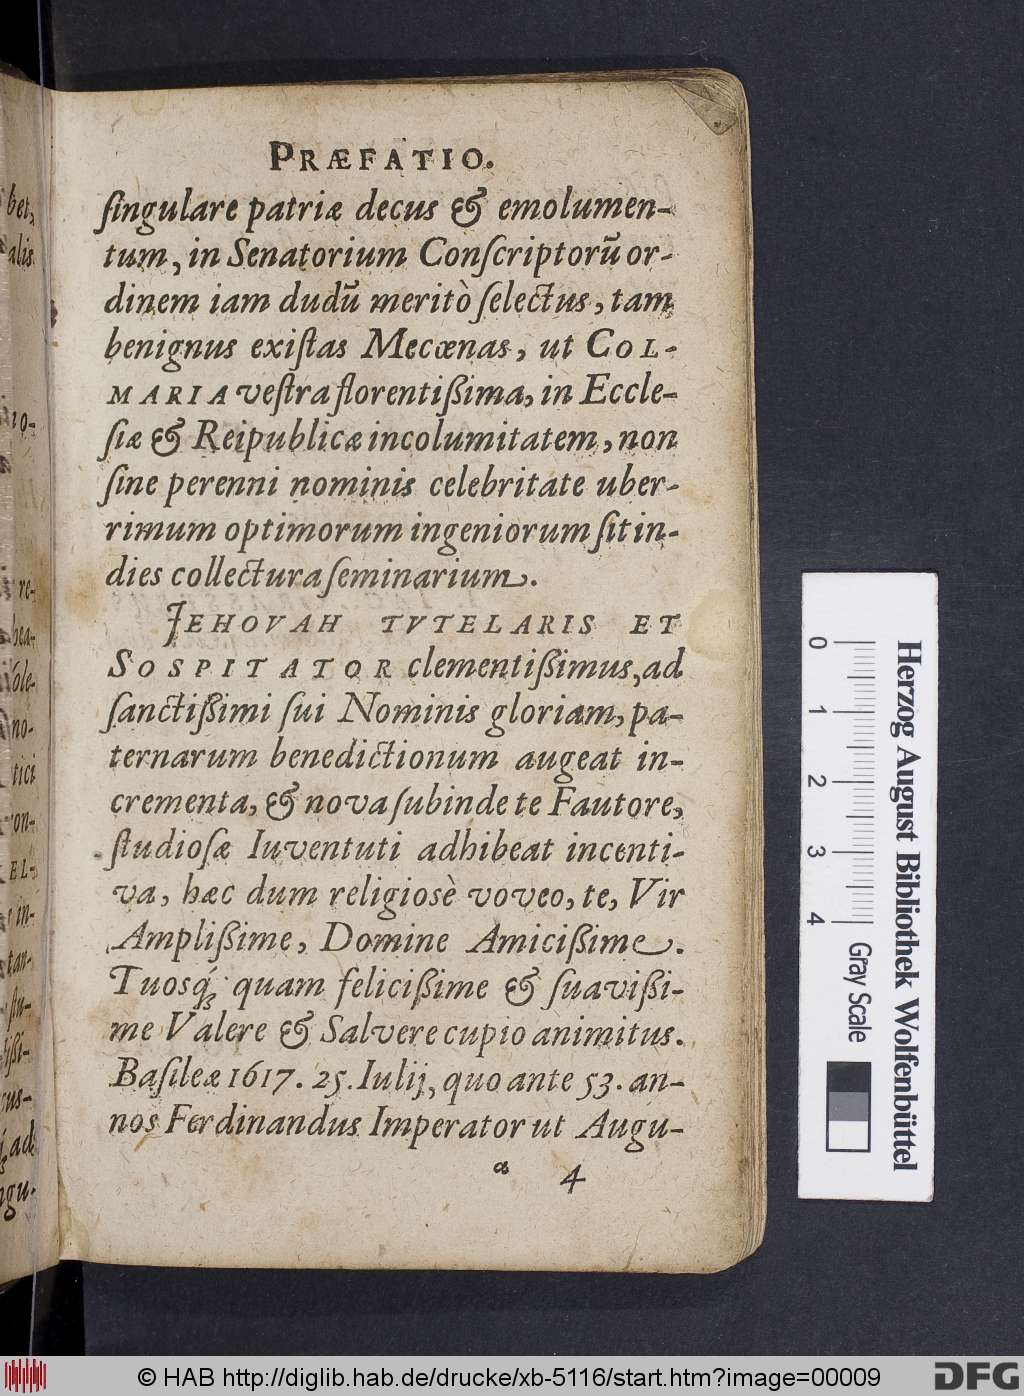 PRÆFATIO.
ſingulare patriæ decus & emolumen-
tum, in Senatorium Conſcriptorũ or-
dinem iam dudũ meritò ſelectus, tam
benignus exiſtas Mecœnas, ut COL-
MARIA veſtra florentißima, in Eccle-
ſiæ & Reipublicæ incolumitatem, non
ſine perenni nominis celebritate uber-
rimum optimorum ingeniorum ſit in-
dies collectura ſeminarium.
JEHOVAH TVTELARIS ET
SOSPITATOR clementißimus, ad
ſanctißimi ſui Nominis gloriam, pa-
ternarum benedictionum augeat in-
crementa, & nova ſubinde te Fautore,
ſtudioſæ Iuventuti adhibeat incenti-
va, hæc dum religiosè voveo, te, Vir
Amplißime, Domine Amicißime.
Tuosq́; quam felicißime & ſuavißi-
me Valere & Salvere cupio animitus.
Baſileæ 1617. 25. Iulij, quo ante 53. an-
nos Ferdinandus Imperator ut Augu-
a 4
bet,
alis
io-
re-
bea-
ole-
no-
tici
on-
EL-
in-
tan-
ſtu-
tißi-
cus-
ad
ngu-
0 1 2 3 4
Gray Scale
Herzog August Bibliothek Wolfenbüttel
© HAB http://diglib.hab.de/drucke/xb-5116/start.htm?image=00009
DFG